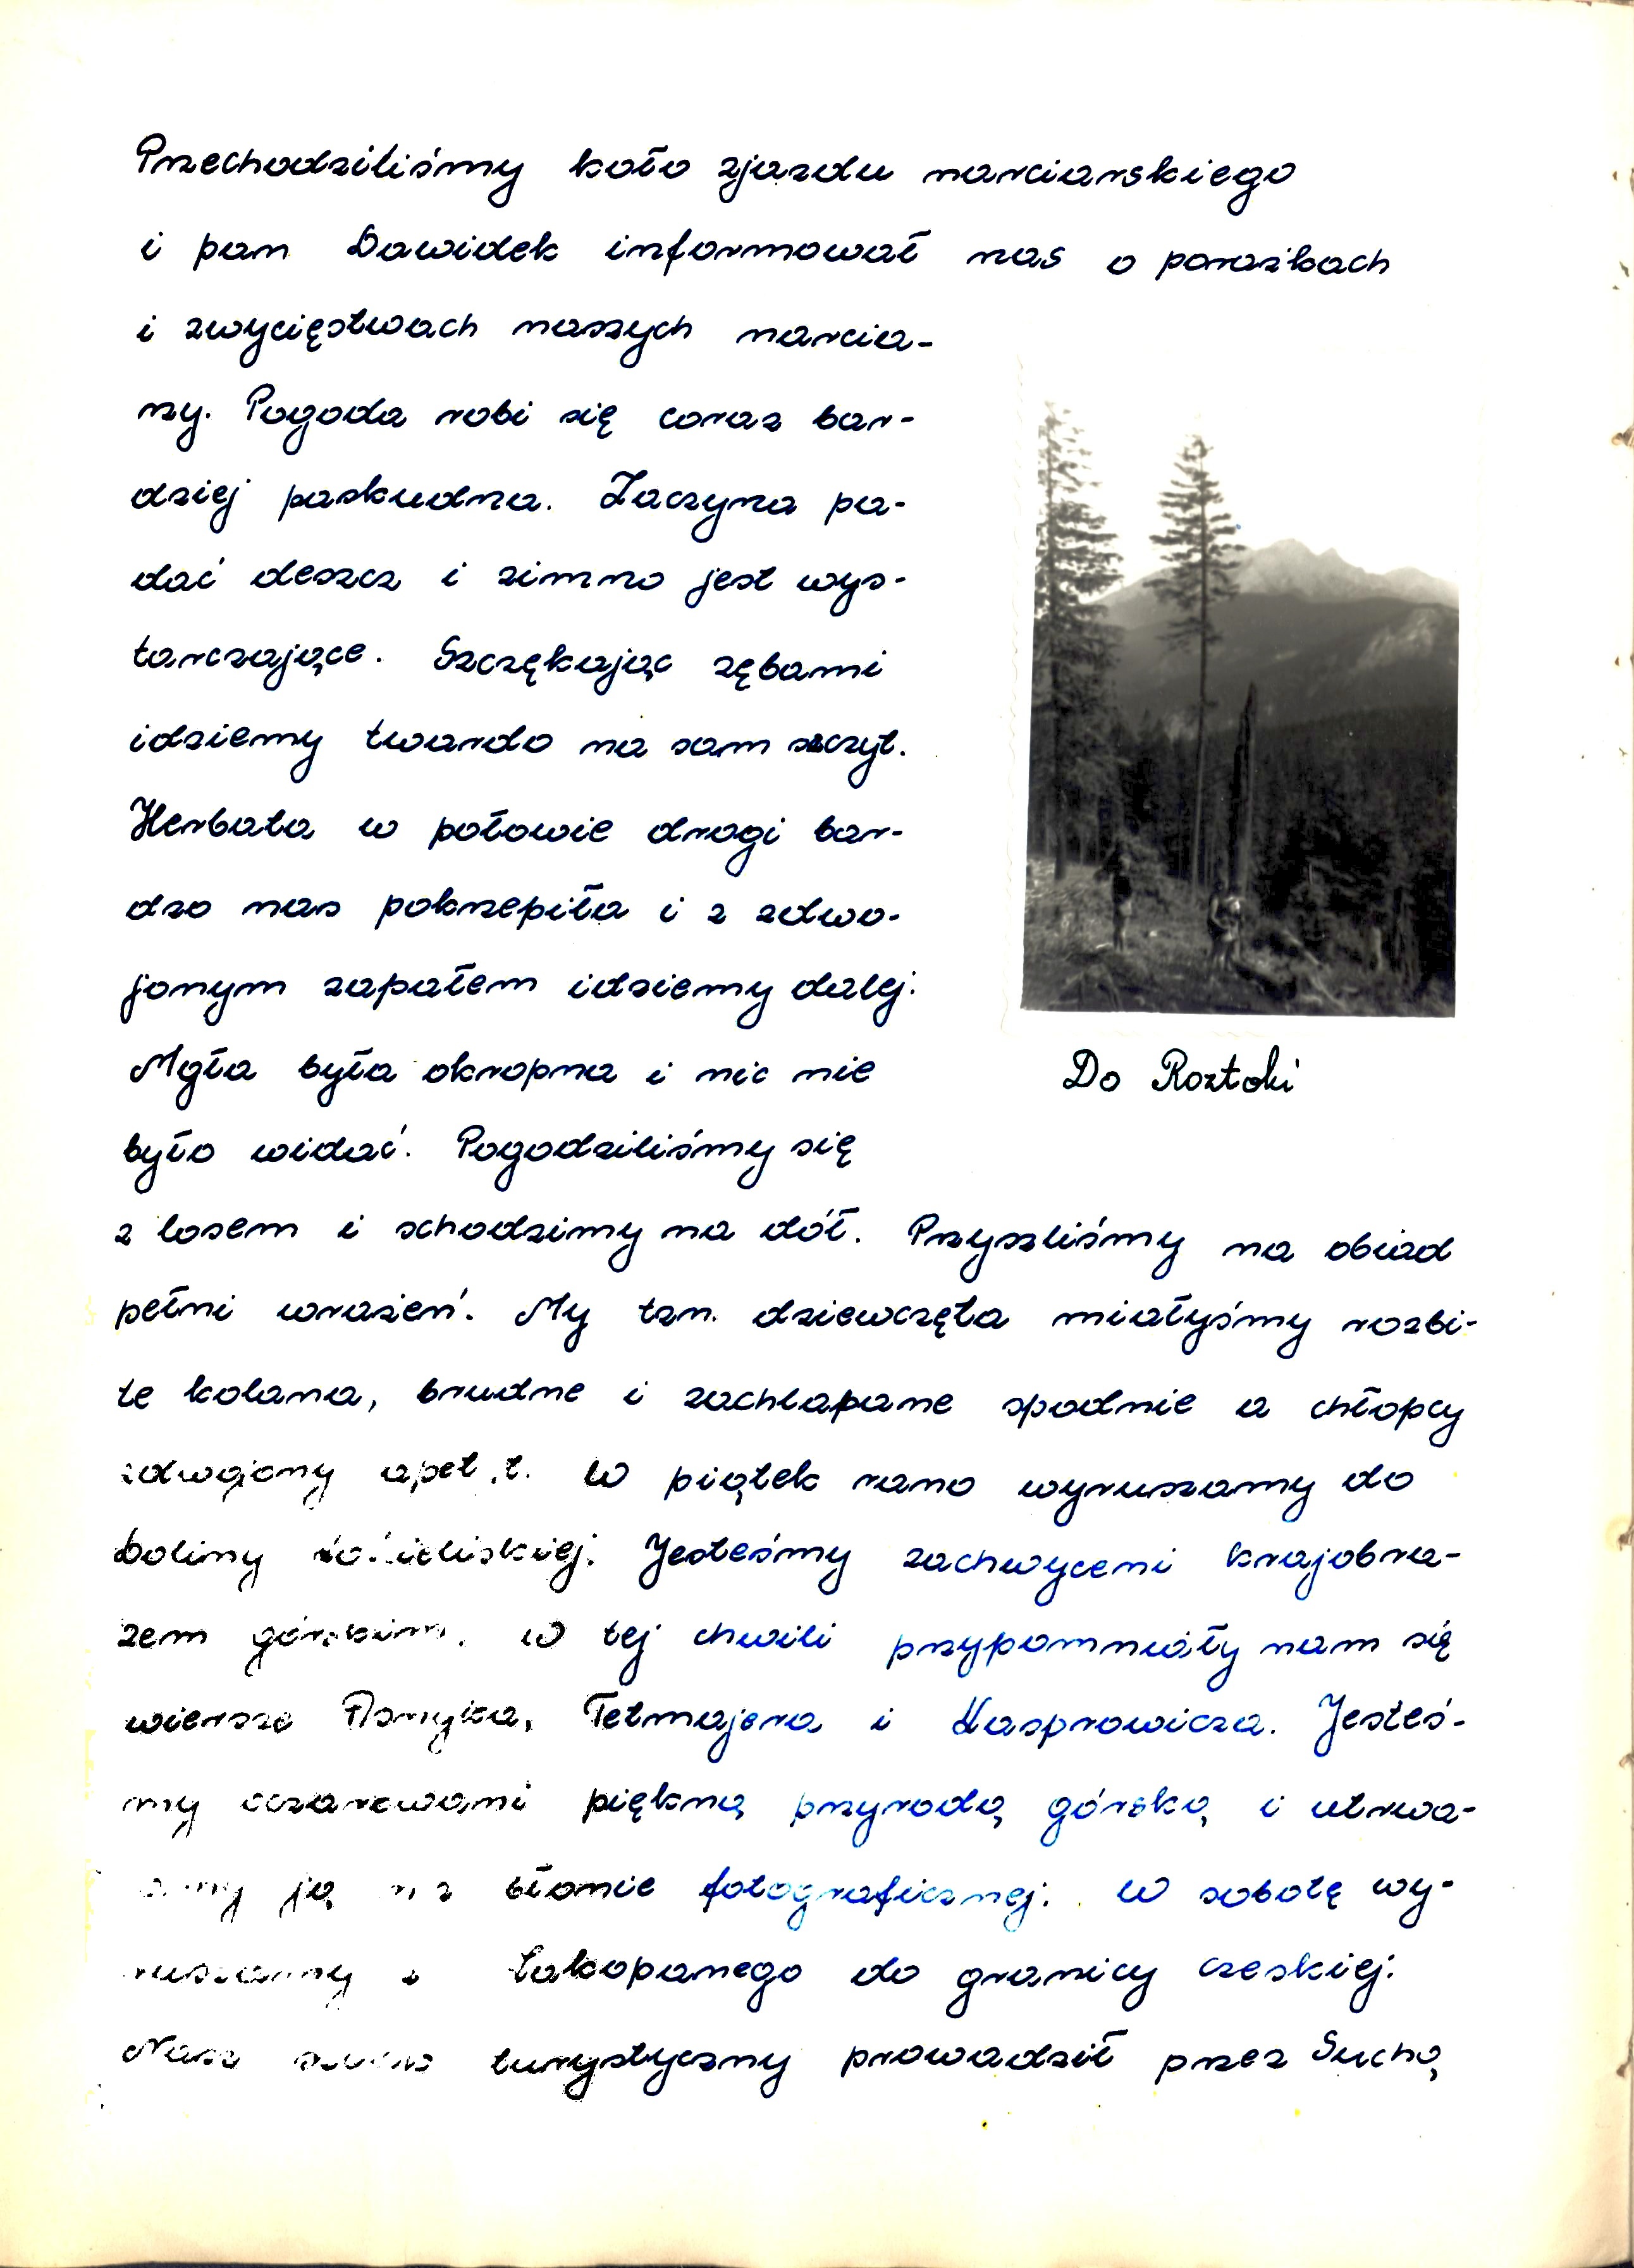 Przechodziliśmy koło zjazdu narciarskiego
i pan Dawidek informował nas o porażkach
i zwycięstwach naszych narcia-
rzy. Pogoda robi się coraz bar-
dziej paskudna. Zaczyna pa-
dać deszcz i zimno jest wys-
tarczające. Szczękając zębami
idziemy twardo na sam szczyt.
Herbata w połowie drogi bar-
dzo nas pokrzepiła i z zdwo-
jonym zapałem idziemy dalej.
Mgła była okropna i nic nie
było widać. Pogodziliśmy się
z losem i schodzimy na dół. Przyszliśmy na obiad
pełni wrażeń. My tzn. dziewczęta miałyśmy rozbi-
te kolana, brudne i zachlapane spodnie a chłopcy
zdwojony apetyt. W piątek rano wyruszamy do
Doliny Kościeliskiej. Jesteśmy zachwyceni krajobra-
zem górskim. W tej chwili przypomniały nam się
wiersze Asnyka, Tetmajera i Kasprowicza. Jesteś-
my oczarowani piękną przyrodą górską i utrwa-
ją na błonie fotograficznej. W sobotę wy-
ruszamy z Zakopanego do granicy czeskiej.
Nasz szlak turystyczny prowadził przez Suchą
Do Roztoki